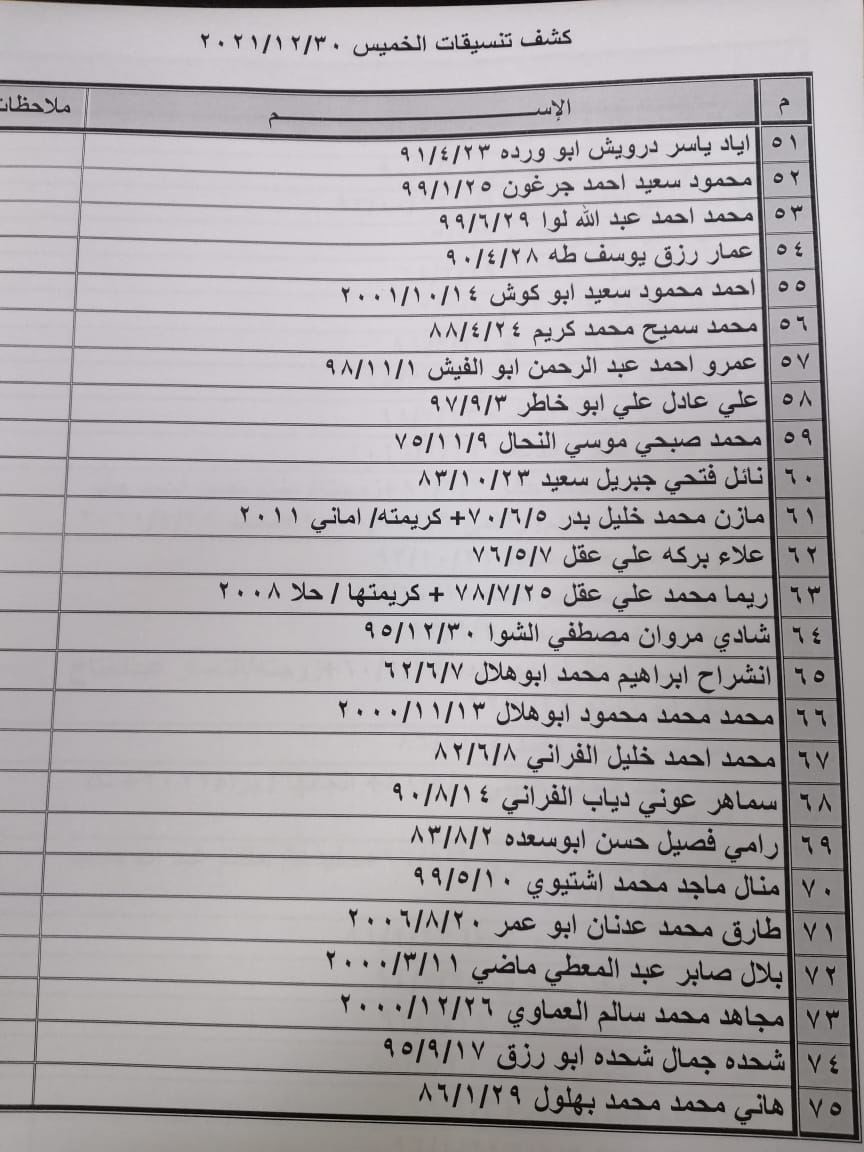 كشف تنسيقات الخميس ٢٠٢١/١٢/٣٠
م الإســــــم ملاحظات
٥١ اياد ياسر درويش ابو ورده ٩١/٤/٢٣
٥٢ محمود سعيد احمد جرغون ٩٩/١/٢٥
٥٣ محمد احمد عبد الله لوا ٩٩/٦/٢٩
٥٤ عمار رزق يوسف طه ٩٠/٤/٢٨
٥٥ احمد محمود سعيد ابو كوش ٢٠٠١/١٠/١٤
٥٦ محمد سميح محمد كريم ٨٨/٤/٢٤
٥٧ عمرو احمد عبد الرحمن ابو الفيش ٩٨/١١/١
٥٨ علي عادل علي ابو خاطر ٩٧/٩/٣
٥٩ محمد صبحي موسي النحال ٧٥/١١/٩
٦٠ نائل فتحي جبريل سعيد ٨٣/١٠/٢٣
٦١ مازن محمد خليل بدر ٧٠/٦/٥+ كريمته/ اماني ٢٠١١
٦٢ علاء بركه علي عقل ٧٦/٥/٧
٦٣ ريما محمد علي عقل ٧٨/٧/٢٥ + كريمتها / حلا ٢٠٠٨
٦٤ شادي مروان مصطفي الشوا ٩٥/١٢/٣٠
٦٥ انشراح ابراهيم محمد ابوهلال ٦٢/٦/٧
٦٦ محمد محمد محمود ابوهلال ٢٠٠٠/١١/١٣
٦٧ محمد احمد خليل الفراني ٨٢/٦/٨
٦٨ سماهر عوني دياب الفراني ٩٠/٨/١٤
٦٩ رامي فصيل حسن ابوسعده ٨٣/٨/٢
٧٠ منال ماجد محمد اشتيوي ٩٩/٥/١٠
٧١ طارق محمد عدنان ابو عمر ٢٠٠٦/٨/٢٠
٧٢ بلال صابر عبد المعطي ماضي ٢٠٠٠/٣/١١
٧٣ مجاهد محمد سالم العماوي ٢٠٠٠/١٢/٢٦
٧٤ شحده جمال شحده ابو رزق ٩٥/٩/١٧
٧٥ هاني محمد محمد بهلول ٨٦/١/٢٩